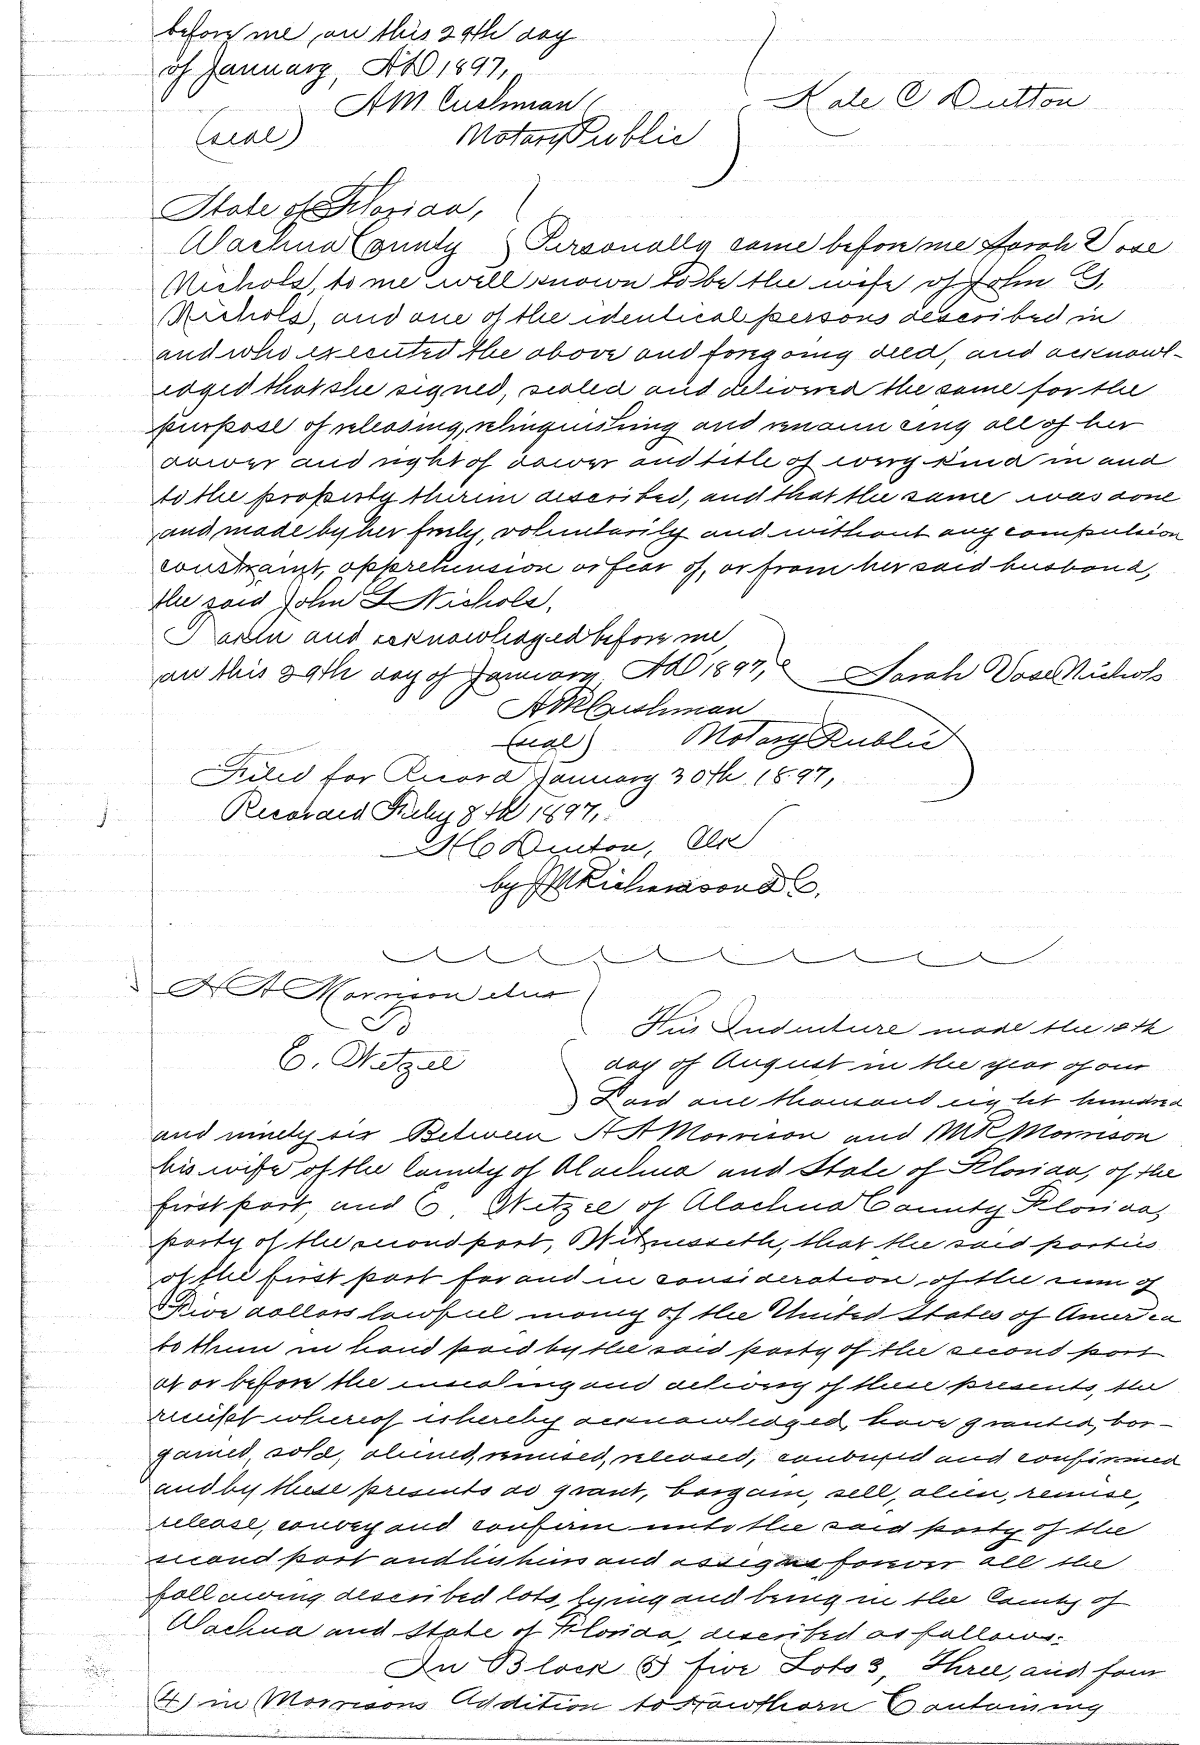 before me on this 29th day
of January, AD 1897,
AM Cushman
Kate C Dutton
(seal) Notary Public
State of Florida,
Alachua County } Personally came before me Sarah Vose
Nichols, to me well known to be the wife of John G.
Nichols, and one of the identical persons described in
and who executed the above and foregoing deed, and acknowl-
edged that she signed, sealed and delivered the same for the
purpose of releasing, relinquishing and renouncing all of her
dower and right of dower and title of every kind in and
to the property therein described, and that the same was done
and made by her freely, voluntarily and without any compulsion
constraint, apprehension or fear of, or from her said husband,
the said John G Nichols.
Taken and acknowledged before me,
on this 29th day of January AD 1897, Sarah Vose Nichols
AM Cushman
(seal) Notary Public
Filed for Record January 30th 1897,
Recorded Feby 8th 1897,
H C Denton, Clk
by J M Richardson D C.
A A Morrison et ux
To
E. Wetzel
This Indenture made the 10th
day of August in the year of our
Lord one thousand eight hundred
and ninety six Between A A Morrison and M R Morrison
his wife of the County of Alachua and State of Florida, of the
first part, and E. Wetzel of Alachua County Florida,
party of the second part, Witnesseth, that the said parties
of the first part for and in consideration of the sum of
Five dollars lawful money of the United States of America
to them in hand paid by the said party of the second part
at or before the ensealing and delivery of these presents, the
receipt whereof is hereby acknowledged, have granted, bar-
gained, sold, aliened, remised, released, conveyed and confirmed
and by these presents do grant, bargain, sell, alien, remise,
release, convey and confirm unto the said party of the
second part and his heirs and assigns forever all the
following described lots, lying and being in the County of
Alachua and State of Florida, described as follows:
In Block (5) five Lots 3, Three, and four
(4) in Morrisons Addition to Hawthorn Containing